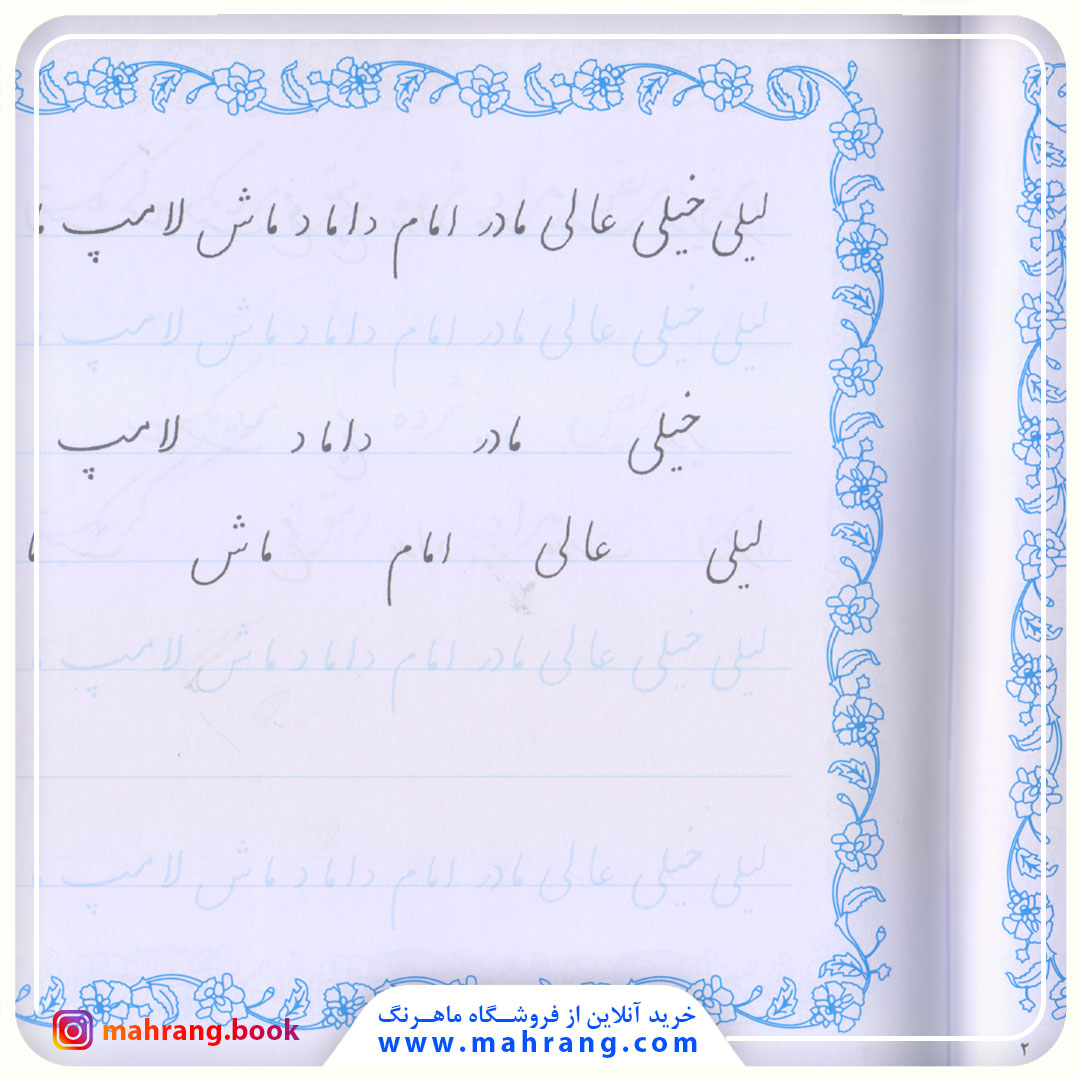 لیلی خیلی عالی مادر امام داماد ماش لامپ
لیلی خیلی عالی مادر امام داماد ماش لامپ
خیلی مادر داماد لامپ
لیلی عالی امام ماش
لیلی خیلی عالی مادر امام داماد ماش لامپ
لیلی خیلی عالی مادر امام داماد ماش لامپ
۲
خرید آنلاین از فروشگاه ماهرنگ
www.mahrang.com
mahrang.book